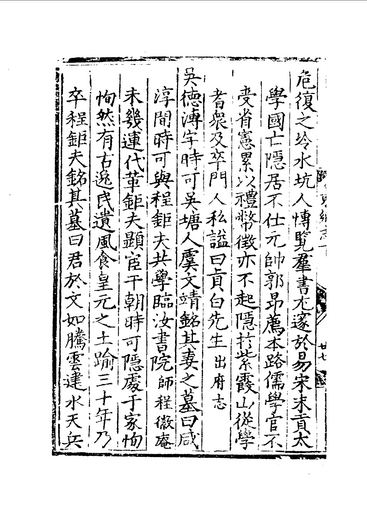 危復之冷水坑人博覽羣書尤邃於易宋末貢太
學國亡隱居不仕元帥郭昂薦本路儒學官不
受省憲累以禮幣徵亦不起隱於紫霞山從學
者衆及卒門人私謚曰貞白先生出府志
吳德溥字時可吳塘人虞文靖銘其妻之墓曰咸
淳間時可與程鉅夫共學臨汝書院師程徽庵
未幾運代革鉅夫顯宦于朝時可隱處于家恂
恂然有古逸民遺風食皇元之土踰三十年乃
卒程鉅夫銘其墓曰君於文如騰雲建水天兵
廿七